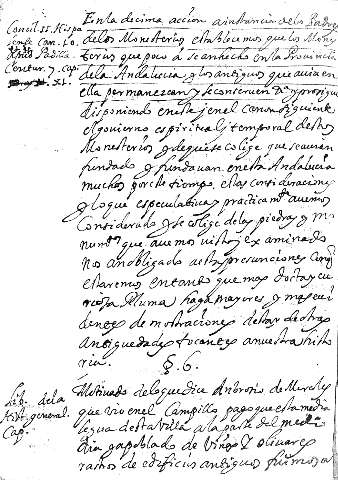 Concil. II. Hispa
lense Can. 10.
En la decima accion a instancia de los Padres
de los Monesterios establecemos que los Mones
terios que poco a se an hecho en la Provincia
de la Andalucia y los antiguos que auia en
ella permanezcan y se conserven
disponiendo en este y en el canon siguiente
el govierno espiritual y temporal destos
Monesterios y de que se colige que se auian
fundado y fundauan en esta Andalucia
muchos por este tiempo, estas consideraciones
y lo que especulatiua y practicamte auemos
Considerado y se colige de las piedras y mo
numtos que auemos visto y examinado
nos an obligado a estas presunciones con que
estaremos en tanto que mas docta y cu
riosa Pluma haga mayores y mas evi
dentes demostraciones destas y de otras
antiguedades tocantes a nuestra histo
ria.
§. 6.
Lib. de la
Hist. general.
Cap.
Motivado de lo que dice Ambrosio de Morales
que vio en el Campillo pago que esta media
legua desta Villa a la parte del medio
dia poblado de Viñas y olivares
rastros de edificios antiguos